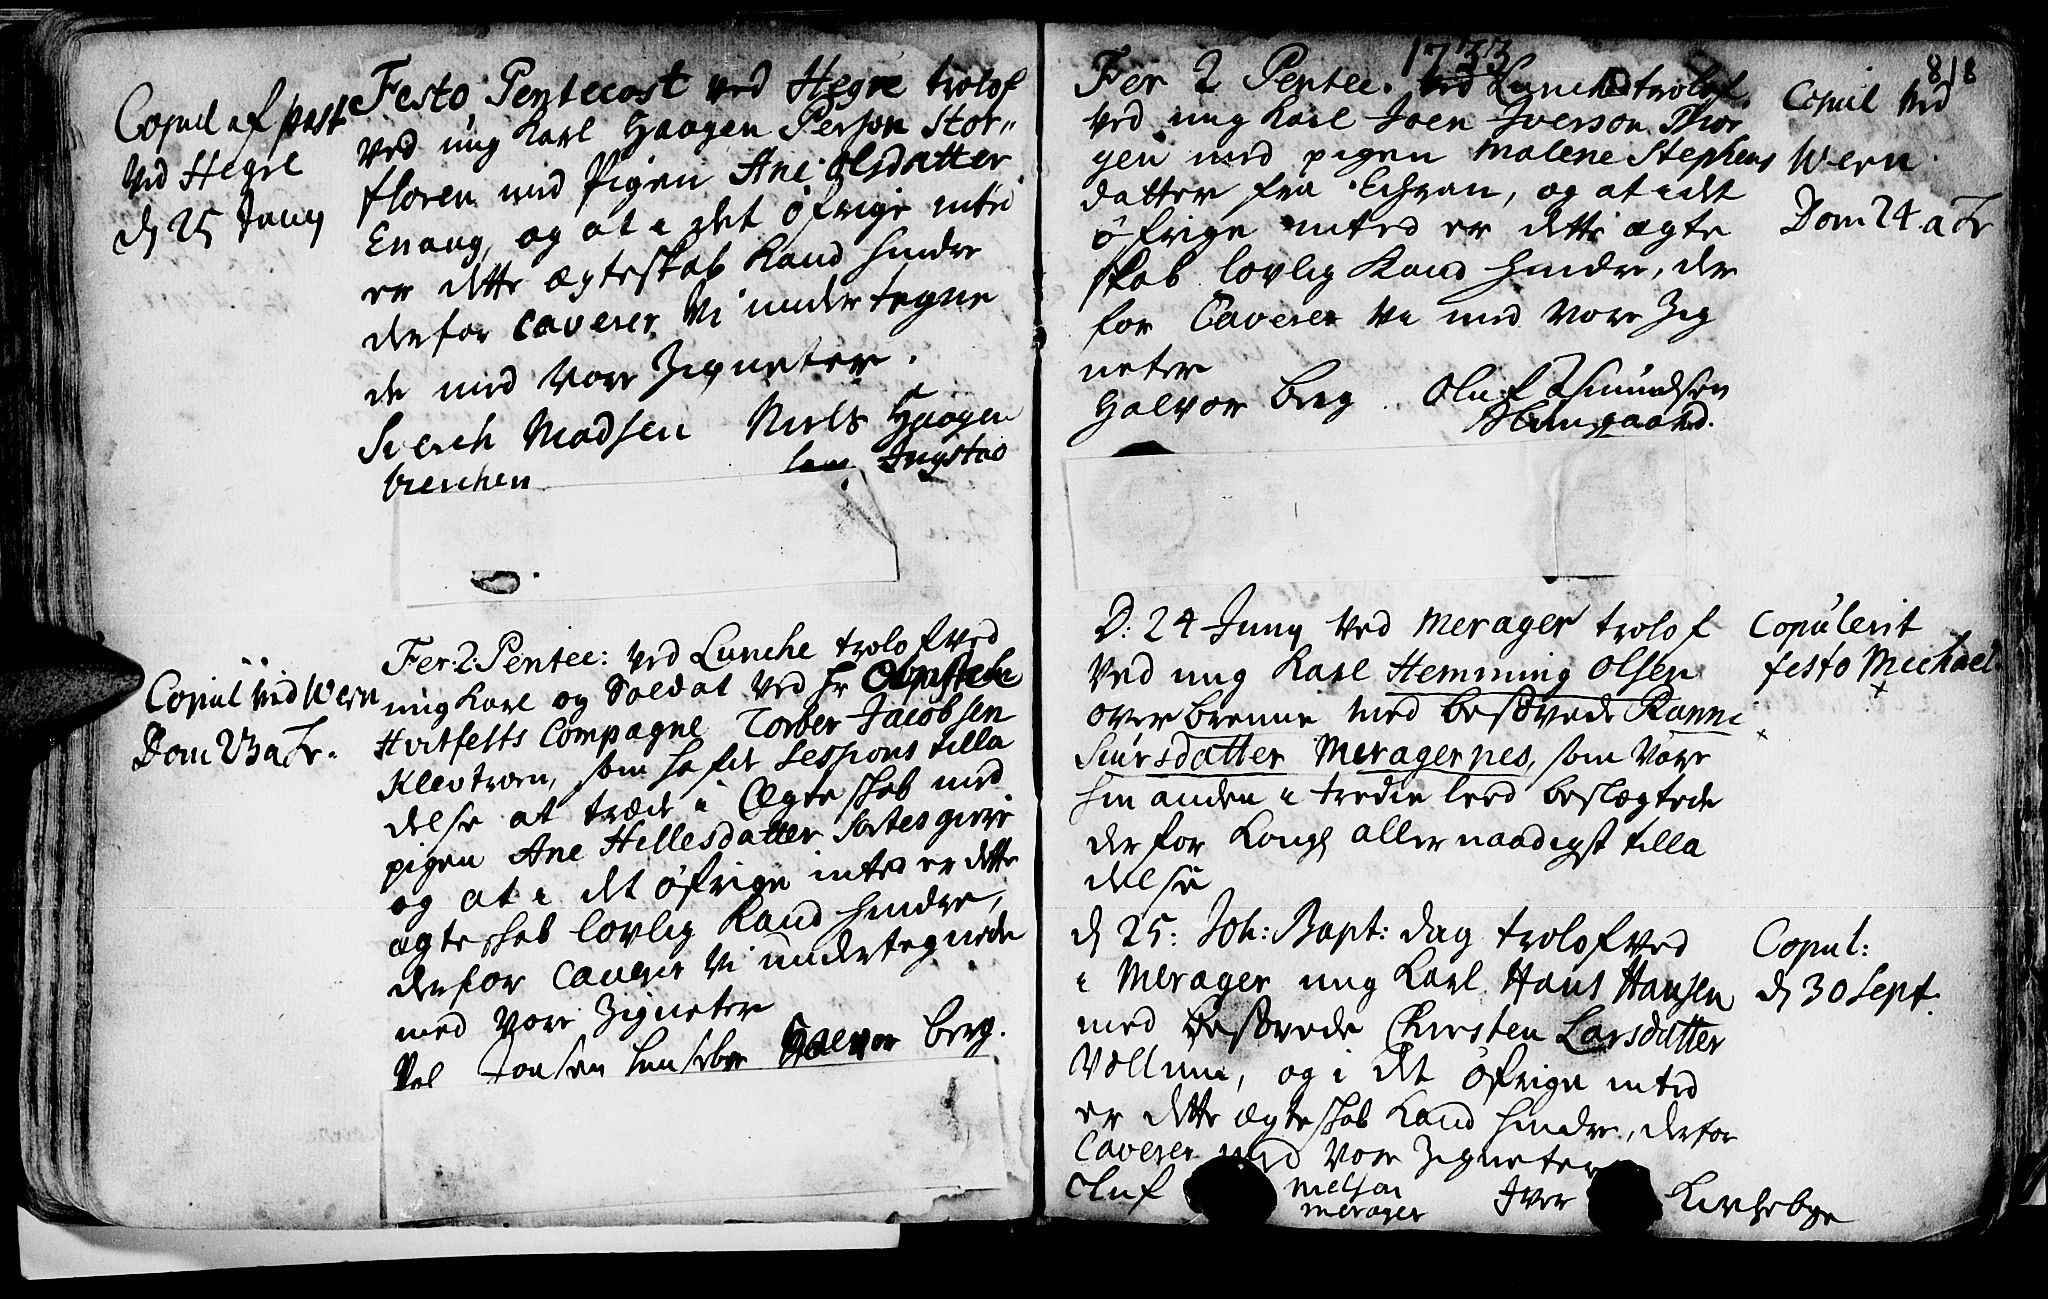 Copul af past
ved Hegre
d 25 Juny
Festo Pentecost ved Hegre trolof
ved ung Karl Haagen Person Stor-
floren med Pigen Ane Olsdatter
Enaag, og at i det öfrige inted
er dette ægteskab Kand hindre
derfor Caverer Vi undertegne
de med Vore Zigneter.
Sverch Madsen Niels Haagen
bierchen sen Ingstad
Copul ved Wern
Dom 23 a Tr.
Fer: 2: Pentec: ved Lunche trolofved
ung Karl og Soldat ved Hr
Hvitfelts Compagne Torber Jacobsen
Klevtroen, som hafr Sessions tilla
delse at træde i Ægteskab med
pigen Ane Hellesdatter
og at i det öfrige inted er dette
ægteskab lovlig Kand hindre,
derfor Caverer Vi undertegnede
med Vore Zigneter
Joensen Halvor Berg.
1733
818
Fer 2 Pentec. ved Lunche trolof.
ved ung Karl Joen Iverson Thor
gen med pigen Malene Stephens
datter fra Echran, og at i det
öfrige inted er dette ægte
skab lovlig Kand hindre, der
for Caverer Vi med Vore Zig
neter
Halvor Berg. Oluf Asmundsen
Copul ved
Wern.
Dom 24 a Tr
D: 24 Juny ved Merager trolof
ved ung Karl Hemming Olsen
overbrenne med besovede Ranni
Siursdatter Meragernes, som vare
hin anden i tredie leed beslægtede
derfor Kongl allernaadigst tilla
delse
Copulerit
festo Michael
d 25: Joh: Bapt: dag trolofved
i Merager ung Karl Hans Hansen
med besovede Chirsten Larsdatter
Vollum, og i det öfrige inted
er dette ægteskab Kand hindre, derfor
Caverer med Vore Zigneter
Oluf Nielson Iver Kirchebye
merager
Copul:
d 30 Sept.